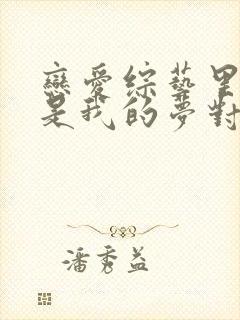 戀愛綜藝里
是我的夢對
潘秀益